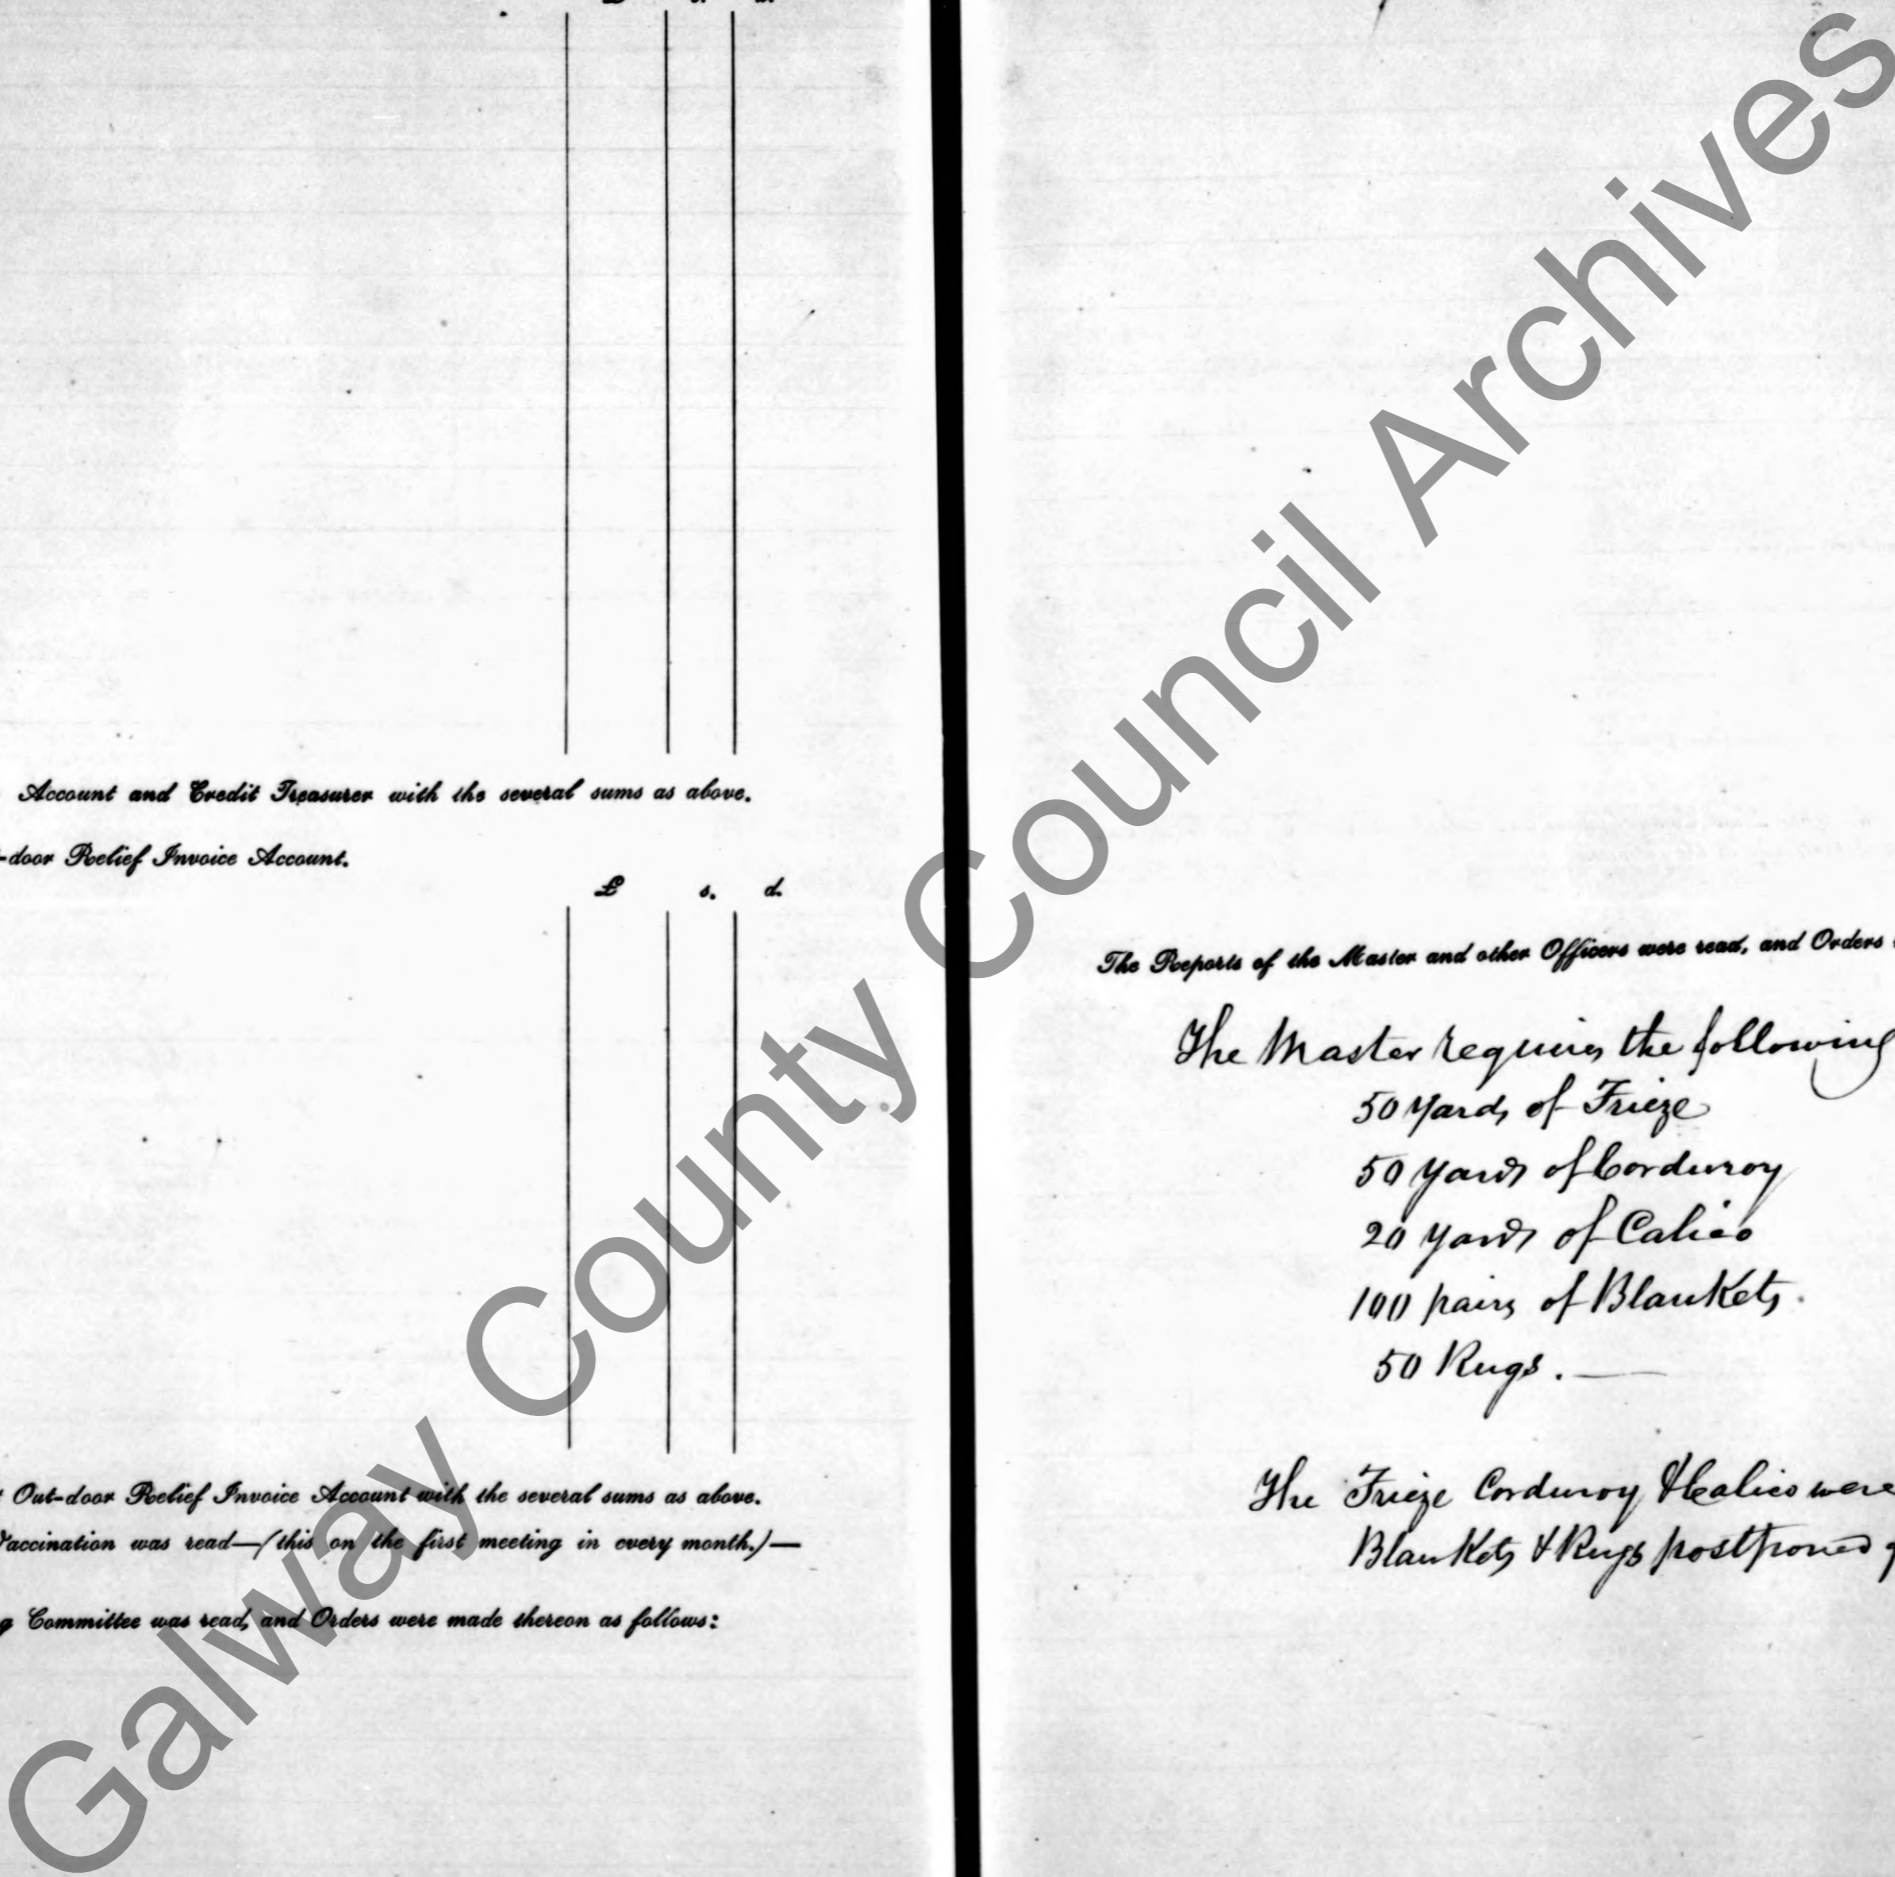 £ s. d.
Account and Credit Treasurer with the several sums as above.
-door Relief Invoice Account.
£ s. d.
Out-door Relief Invoice Account with the several sums as above.
Vaccination was read—(this on the first meeting in every month.)—
g Committee was read, and Orders were made thereon as follows:
The Reports of the Master and other Officers were read, and Orders
The Master requires the following
50 Yards of Frieze
50 Yards of Corduroy
20 Yards of Calico
100 pairs of Blankets.
50 Rugs.—
The Frieze Corduroy & Calico were
Blankets & Rugs postponed
Galway County Council Archives